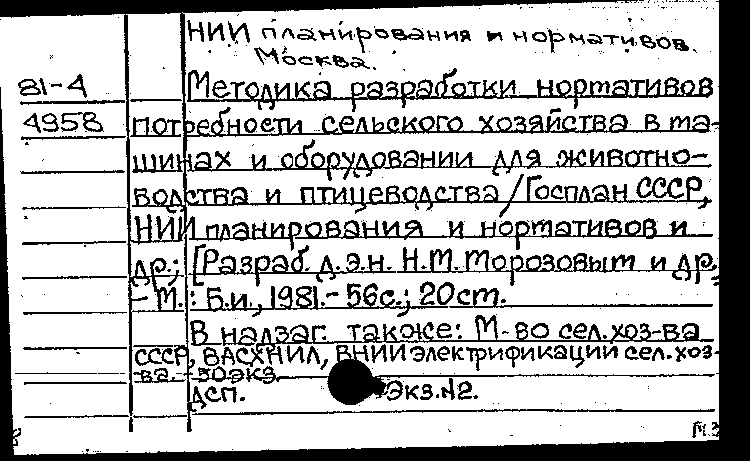 НИИ планирования и нормативов.
Москва.
81-4 Методика разработки нормативов
4958 потребности сельского хозяйства в ма-
шинах и оборудовании для животно-
водства и птицеводства / Госплан СССР,
НИИ планирования и нормативов и
др.; [Разраб. д.э.н. Н.М. Морозовым и др.
- М.: Б.и., 1981.- 56с.; 20см.
В надзаг. также: М-во сел.хоз-ва
СССР, ВАСХНИЛ, ВНИИ электрификации сел.хоз-
ва. - 50экз.
ДСП. Экз.№2.